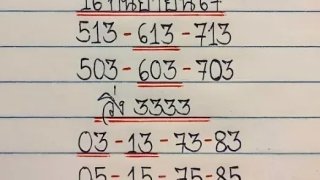 16 กันยายน 67
513-613-713
503-603-703
วิ่ง 3333
03-13-73-83
05-15-75-85